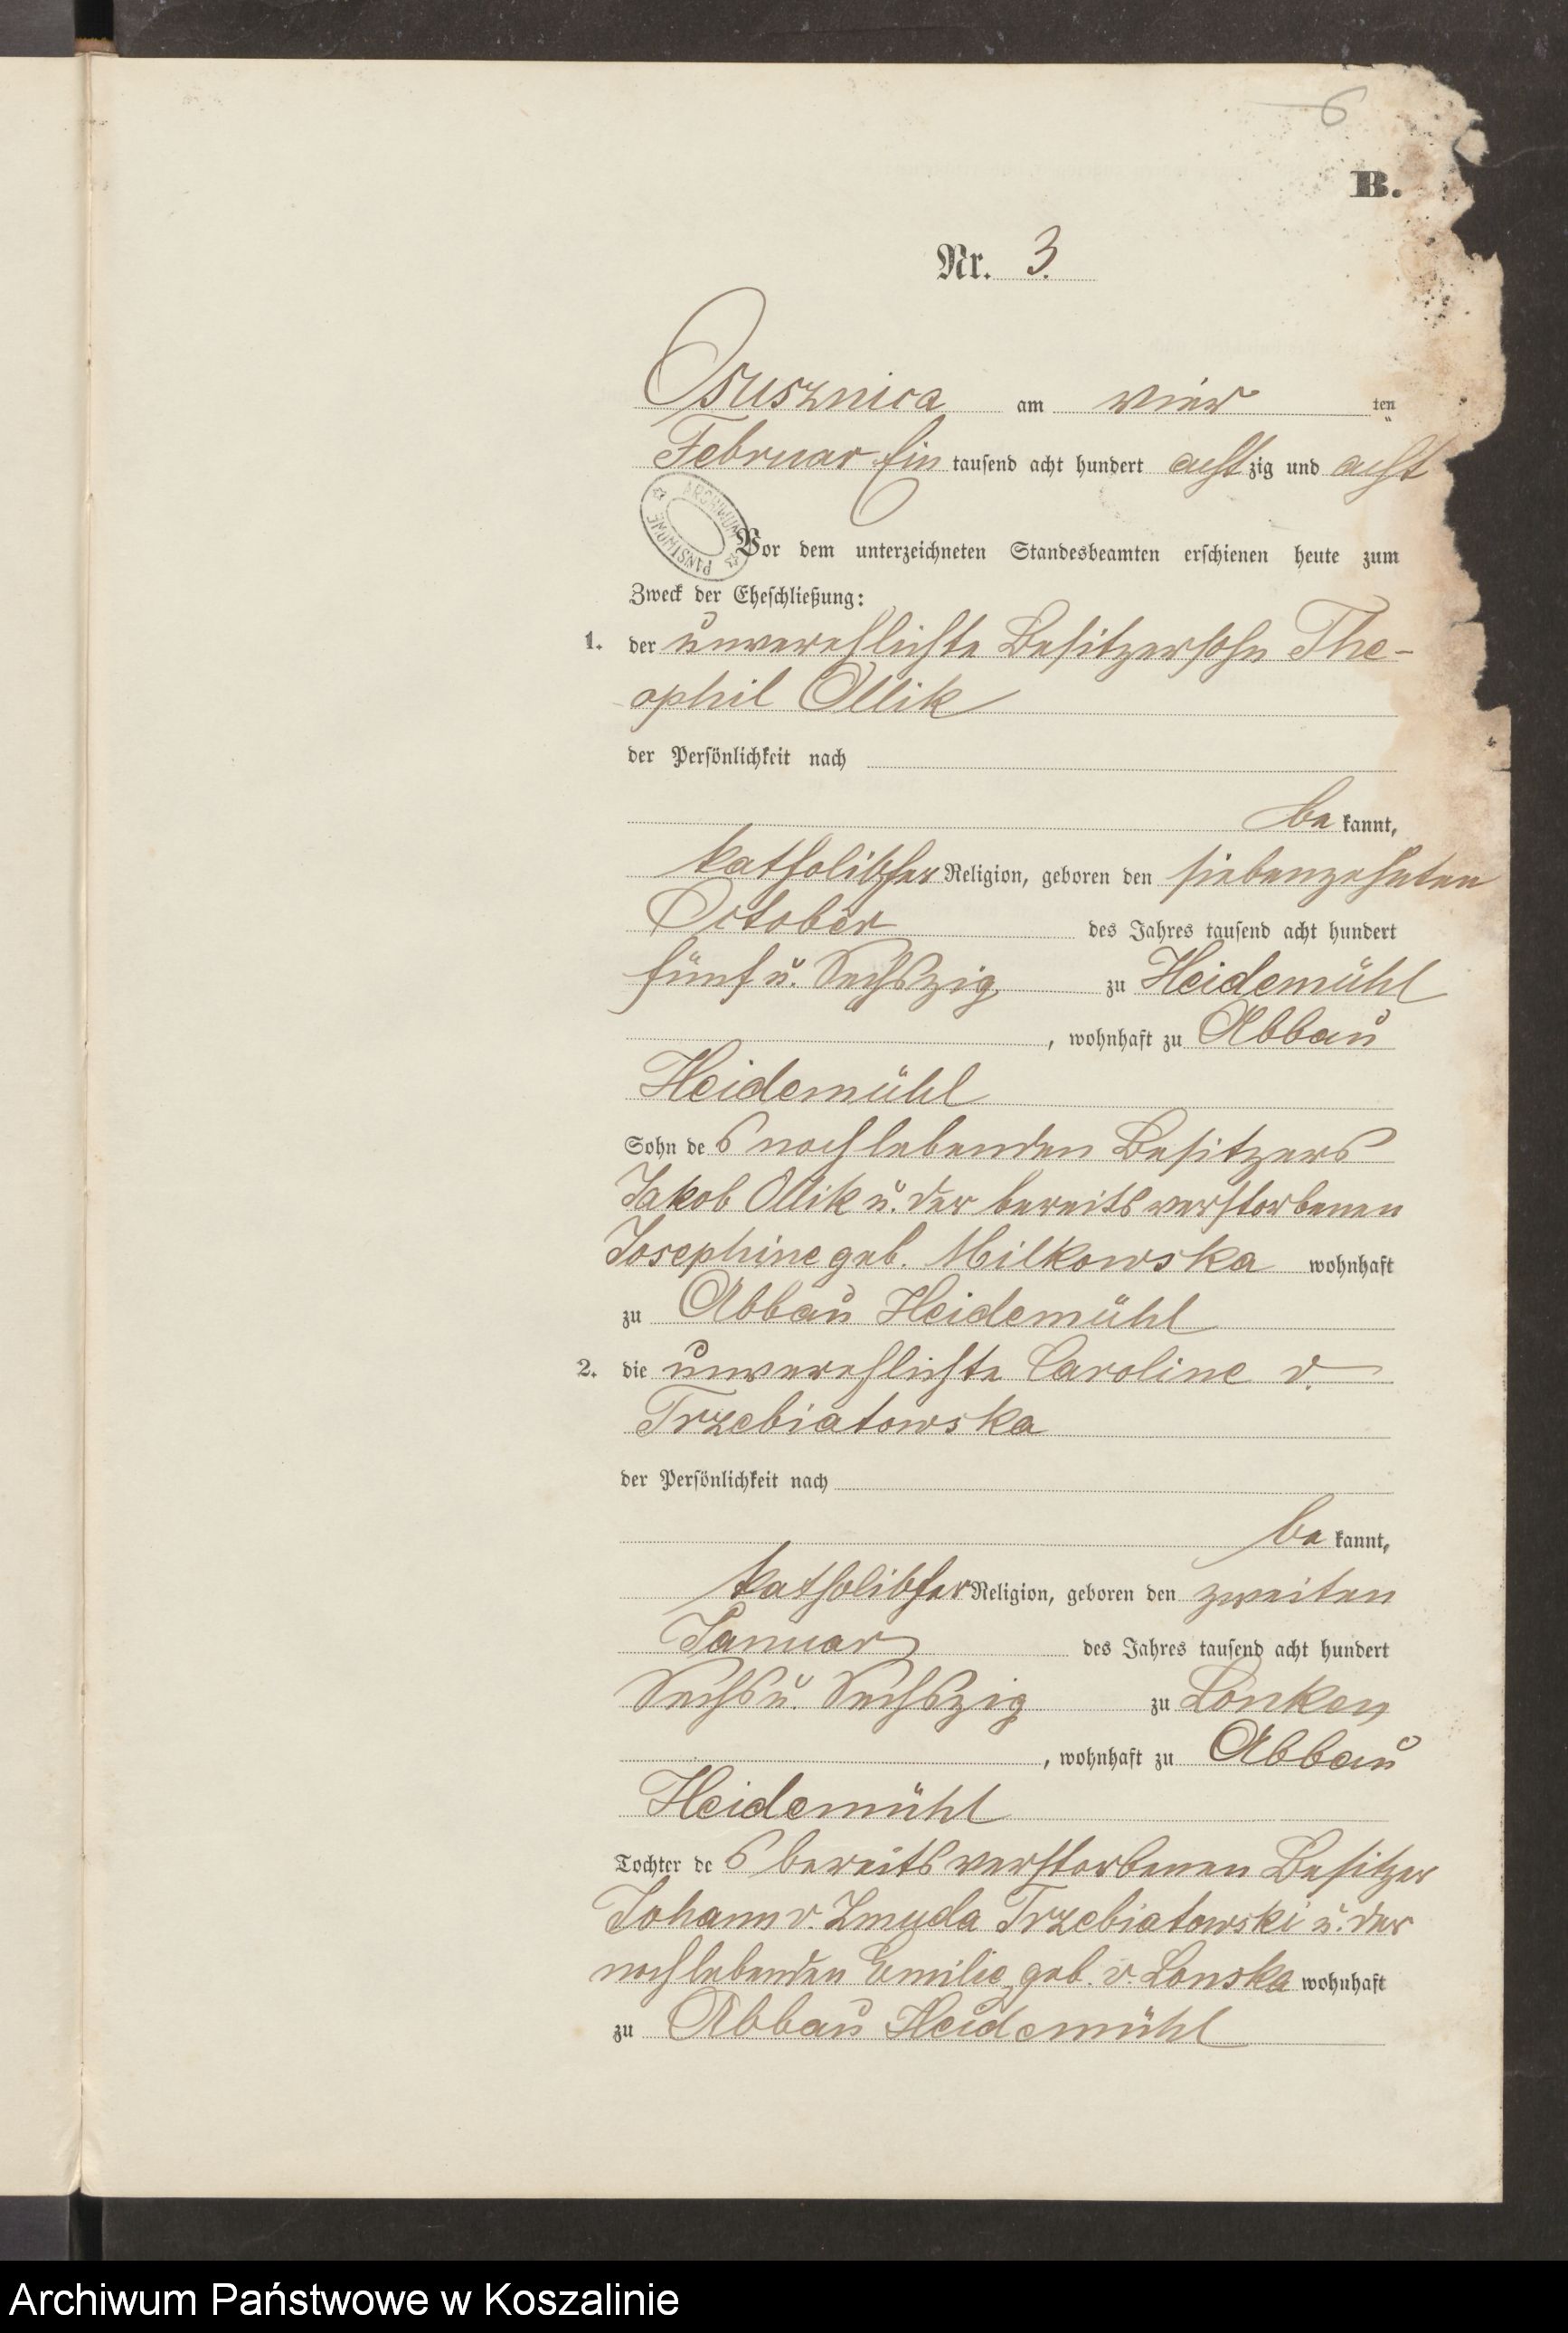 6
B.
Nr. 3.
Osusznica am vier ten
Februar Ein tausend acht hundert acht zig und acht
ARCHIWUM PAŃSTWOWE
Vor dem unterzeichneten Standesbeamten erschienen heute zum
Zweck der Eheschließung:
1. der unverehlichte Besitzersohn The-
ophil Ollik
der Persönlichkeit nach
be kannt,
katholischer Religion, geboren den siebenzehnten
October des Jahres tausend acht hundert
fünf u. Sechszig zu Heidemühl
, wohnhaft zu Abbau
Heidemühl
Sohn de s noch lebenden Besitzers
Jakob Ollik u. der bereits verstorbenen
Josephine geb. Milkowska wohnhaft
zu Abbau Heidemühl
2. die unverehlichte Caroline v.
Trzebiatowska
der Persönlichkeit nach
be kannt,
katholischer Religion, geboren den zweiten
Januar des Jahres tausend acht hundert
Sechs u. Sechszig zu Lonken
, wohnhaft zu Abbau
Heidemühl
Tochter de s bereits verstorbenen Besitzer
Johann v. Zmyda Trzebiatowski u. der
noch lebenden Emilie, geb. v. Lonska wohnhaft
zu Abbau Heidemühl
Archiwum Państwowe w Koszalinie